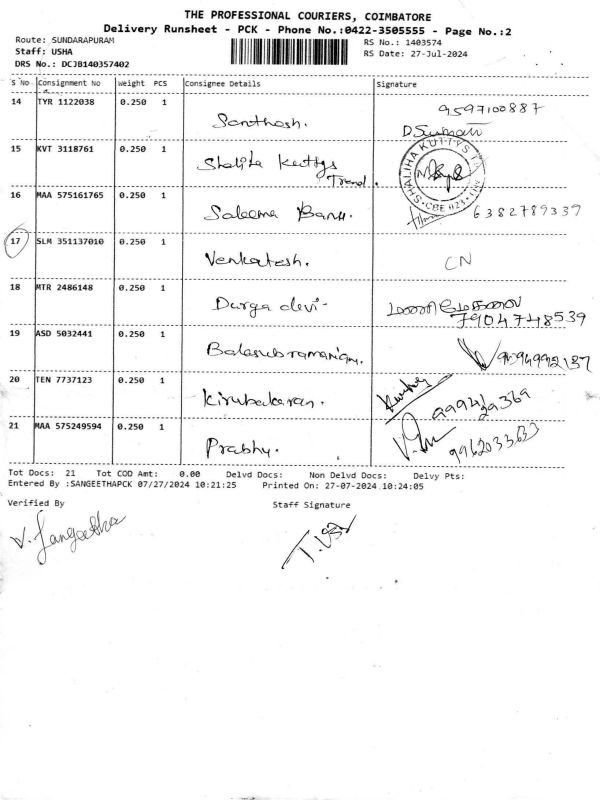 THE PROFESSIONAL COURIERS, COIMBATORE
Delivery Runsheet - PCK - Phone No.:0422-3505555 - Page No.:2
Route: SUNDARAPURAM
RS No.: 1403574
Staff: USHA
RS Date: 27-Jul-2024
DRS No.: DCJB140357402
S No Consignment No Weight PCS Consignee Details Signature
14 TYR 1122038 0.250 1 Santhosh. 9597100887
15 KVT 3118761 0.250 1 Shaliha Kuttys Trend.
SHALIHA KUTTYS
16 MAA 575161765 0.250 1 Saleema Banu. 6382789339
17 SLM 351137010 0.250 1 Venkatesh. CN
18 MTR 2486148 0.250 1 Durga devi- 7904748539
19 ASD 5032441 0.250 1 Balasubramaniam.
20 TEN 7737123 0.250 1 Kirubakaran.
21 MAA 575249594 0.250 1 Prabhu. 9962033633
Tot Docs: 21 Tot COD Amt: 0.00 Delvd Docs: Non Delvd Docs: Delvy Pts:
Entered By :SANGEETHAPCK 07/27/2024 10:21:25 Printed On: 27-07-2024 10:24:05
Verified By Staff Signature
V. Sangeetha
T. USha